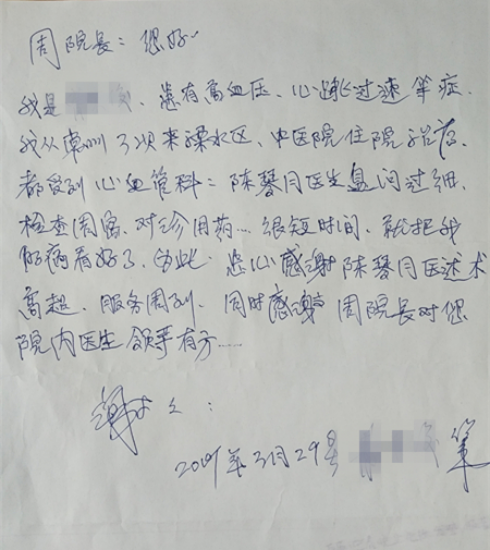 周院長：您好
我是 患有高血压、心跳过速等症.
我从 3次来溧水区、中医院住院治疗.
都受到心血管科：陈琴月医生 问过细.
检查周密、对诊用药… 很短时间、就把我
的病看好了. 为此. 衷心感谢陈琴月医述术
高超. 服务周到. 同时感谢 周院长对您
院内医生领导有方……
谢之：
2019年3月29号 笔